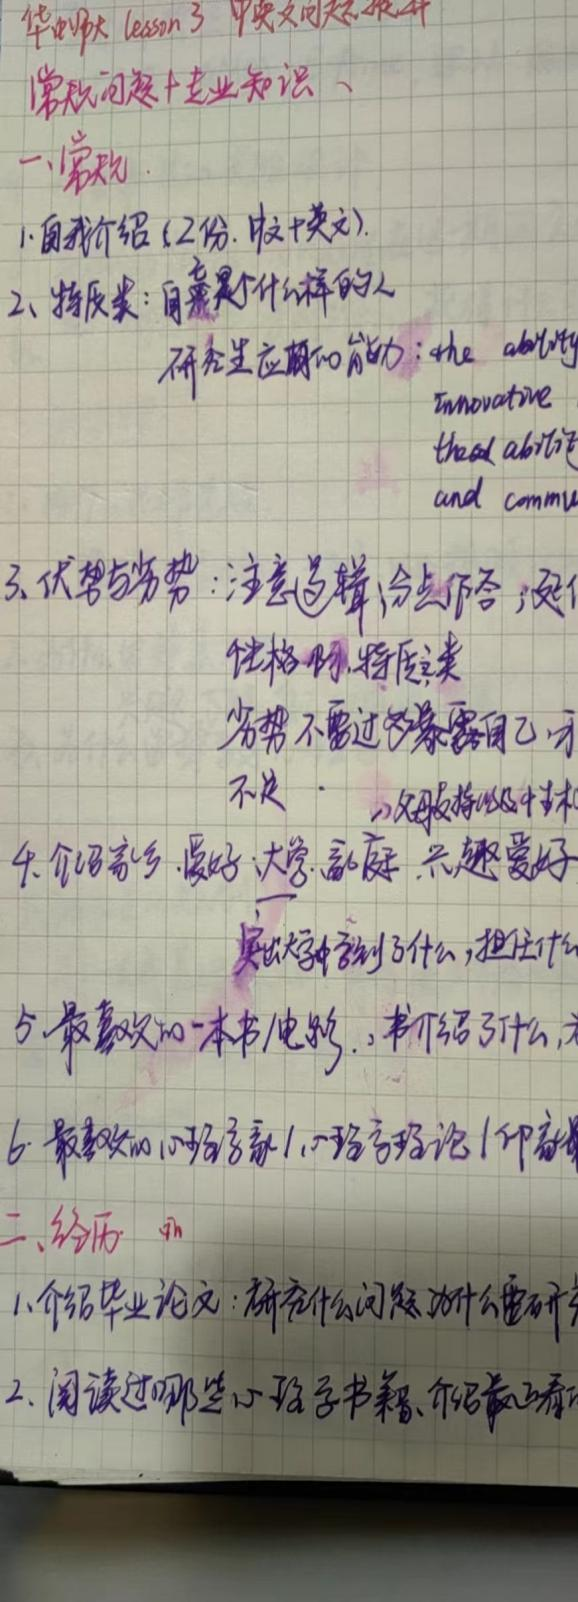 华中师大 lesson 3 中英文问题提升
常规问题+专业知识、
一、常规.
1.自我介绍(2份.中文+英文).
2、特质类:自己是个什么样的人
研究生应具的能力:the ability
Innovative
the abilit
and commu
3、优势与劣势:注意逻辑,分点作答;
性格 特质类
劣势不要过多暴露自己
不足.
父母支持
4.介绍家乡.爱好.大学.家庭.兴趣爱好
突出大学中学到了什么,担任什么
5、最喜欢的一本书/电影.书介绍了什么,
6.最喜欢的心理学家/心理学理论/印象最
二、经历
1、介绍毕业论文:研究什么问题 为什么要研究
2、阅读过哪些心理学书籍、介绍最近看的